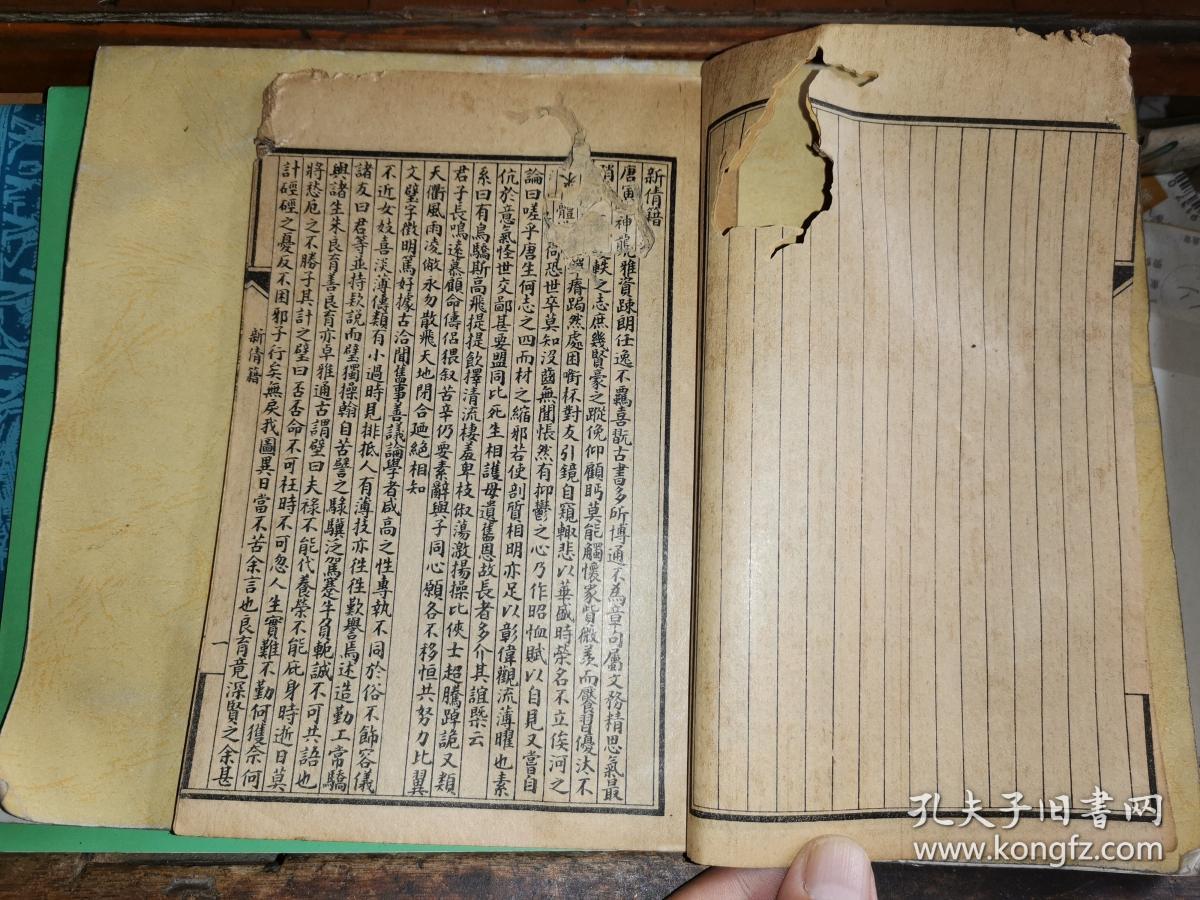 新倩籍
唐寅神龍雅資疎朗任逸不羈喜翫古書多所博通不為章句屬文務精思氣最
軼之志庶幾賢豪之蹤俛仰顧眄莫能觸懷家貲微羨而饜習優汰不
瘠跼然處困銜杯對友引鏡自窺輒悲以華盛時榮名不立俟河之
尚恐世卒莫知沒齒無聞悵然有抑鬱之心乃作昭恤賦以自見又嘗自
論曰嗟乎唐生何志之四而材之縮邪若使剖質相明亦足以彰偉觀流薄曜也素
伉於意氣怪世交鄙甚要盟同比死生相護毋遺舊恩故長者多介其誼槩云
系曰有鳥驕斯高飛提提飲擇清流棲羞卑枝俶蕩激揚操比俠士超騰踔詭又類
君子長鳴遠慕顧命儔侶猥叙苦辛仍要素辭與子同心願各不移恒共努力比翼
天衢風雨凌倣永勿散飛天地閉合廼絕相知
文璧字徵明篤好據古洽聞舊事善議論學者咸高之性專執不同於俗不飾容儀
不近女妓喜淡薄儔類有小過時見排抵人有薄技亦徃徃歎譽焉述造勤工常驕
諸友曰君等並持欵說而璧獨操翰自苦譬之騄驥泛駕蹇牛負軛誠不可共語也
與諸生朱良育善良育亦卓雅通古謂璧曰夫祿不能代養榮不能庇身時逝日莫
將愁厄之不勝子其計之璧曰否否命不可枉時不可忽人生實難不勤何獲奈何
計硜硜之憂反不困邪子行矣無戾我圖異日當不苦余言也良育竟深賢之余甚
新倩籍
一
孔夫子旧书网
www.kongfz.com